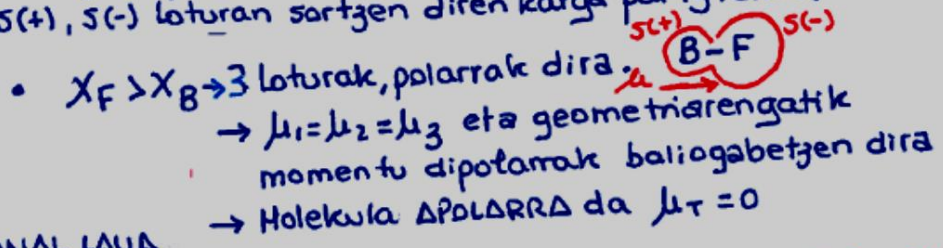 δ(+), δ(-) loturan sortzen diren karga
δ(+) δ(-)
• XF > XB → 3 loturak, polarrak dira. B-F
μ →
→ μ1 = μ2 = μ3 eta geometriarengatik
momentu dipolarrak baliogabetzen dira
→ Molekula APOLARRA da μT = 0